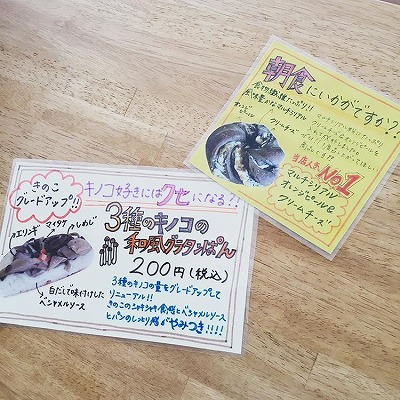 朝食にいかがですか??
食物繊維たっぷり!!
風味豊かなマルチシリアル
クリームチーズ
当店人気No.1
マルチシリアル
オレンジピールと
クリームチーズ
きのこ
グレードアップ!!
キノコ好きにはクセになる?!
マイタケ
エリンギ
しめじ
3種のキノコの
和風グラタンぱん
200円(税込)
白だしで味付けした
ベシャメルソース
3種のキノコの量をグレードアップして
リニューアル!!
きのこのシャキシャキ食感とベシャメルソース
とパンのしっとり感がやみつき!!!!